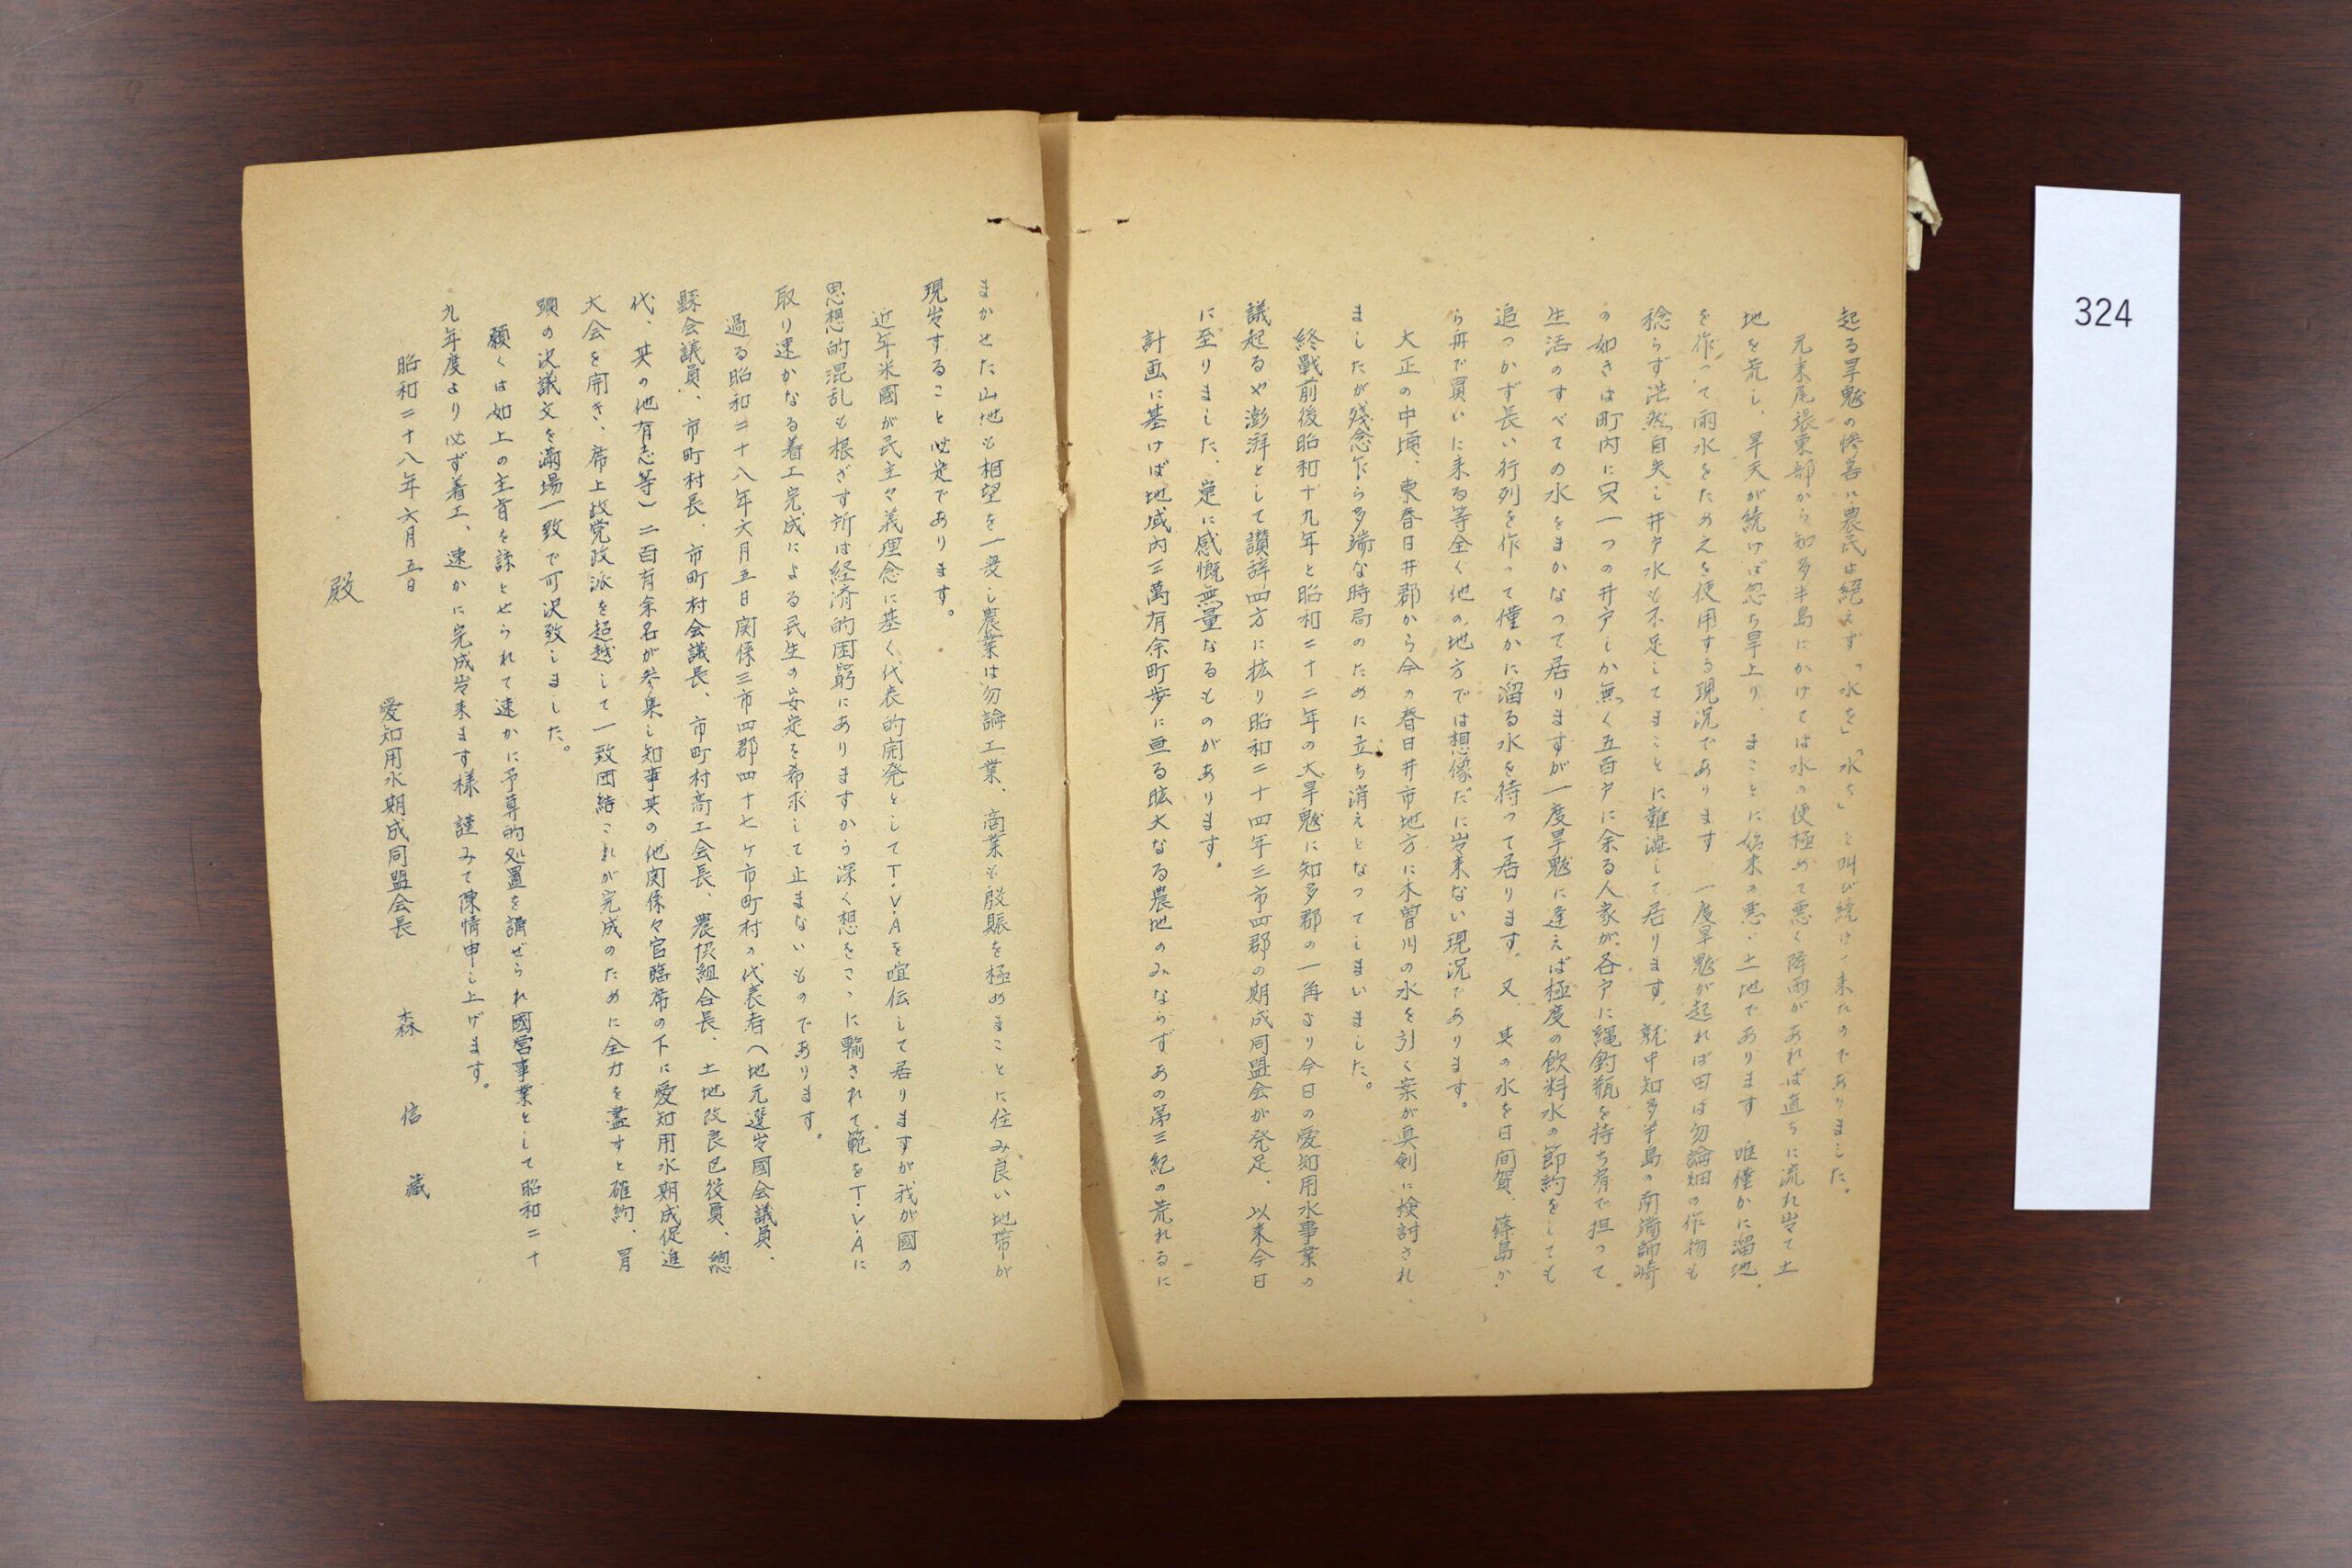 起る旱魃の惨害に農民は絶えず「水を」「水を」と叫び続けて来たのでありました。
元来尾張東部から知多半島にかけては水の便極めて悪く降雨があれば直ちに流れ出て土
地を荒し、旱天が続けば忽ち旱上り、まことに始末の悪い土地であります 唯僅かに溜池
を作って雨水をため之を使用する現況であります 一度旱魃が起れば田は勿論畑の作物も
稔らず茫然自失し井戸水も不足してまことに難澁して居ります。就中知多半島の南端師崎
の如きは町内に只一つの井戸しか無く五百戸に余る人家が各戸に縄釣瓶を持ち肩で担って
生活のすべての水をまかなって居りますが一度旱魃に逢えば極度の飲料水の節約をしても
追つかず長い行列を作って僅かに溜る水を待つて居ります。又、其の水を日間賀、篠島か
ら舟で買いに来る等全く他の地方では想像だに出来ない現況であります。
大正の中頃、東春日井郡から今の春日井市地方に木曽川の水を引く案が真剣に検討され
ましたが残念乍ら多端な時局のために立ち消えとなつてしまいました。
終戰前後昭和十九年と昭和二十二年の大旱魃に知多郡の一角より今日の愛知用水事業の
議起るや澎湃として讃辞四方に拡り昭和二十四年三市四郡の期成同盟会が発足、以来今日
に至りました、洵に感慨無量なるものがあります。
計画に基けば地域内三萬有余町歩に亘る厖大なる農地のみならずあの第三紀の荒れるに
まかせた山地も相望を一変し農業は勿論工業、商業も殷賑を極めまことに住み良い地帯が
現出すること必定であります。
近年米國が民主々義理念に基く代表的開発としてT.V.Aを喧伝して居りますが我が國の
思想的混乱も根ざす所は経済的困窮にありますから深く想をこゝに輸されて範をT.V.Aに
取り速かなる着工完成による民生の安定を希求して止まないものであります。
過る昭和二十八年六月五日関係三市四郡四十七ケ市町村の代表者(地元選出國会議員、
縣会議員、市町村長、市町村会議長、市町村商工会長、農協組合長、土地改良区役員、總
代、其の他有志等)二百有余名が参集し知事其の他関係々官臨席の下に愛知用水期成促進
大会を開き、席上政党政派を超越して一致団結これが完成のために全力を盡すと確約、冒
頭の決議文を満場一致で可決致しました。
願くは如上の主旨を諒とせられて速かに予算的処置を講ぜられ國営事業として昭和二十
九年度より必ず着工、速かに完成出来ます様 謹みて陳情申し上げます。
昭和二十八年六月五日
愛知用水期成同盟会長 森 信 蔵
殿
324